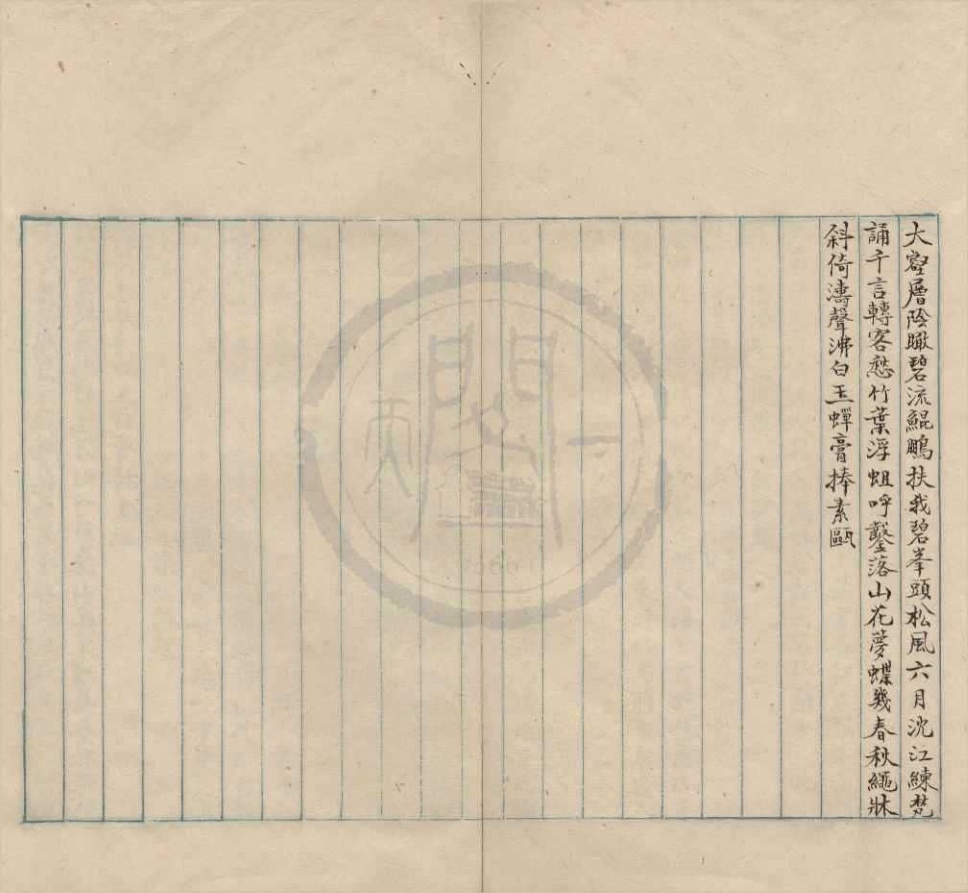 大壑層陰瞰碧流鯤鵬扶我碧峯頭松風六月沈江練梵
誦千言轉客愁竹葉浮蛆呼鑿落山花夢蝶幾春秋繩牀
斜倚濤聲沸白玉蟬膏捧素甌